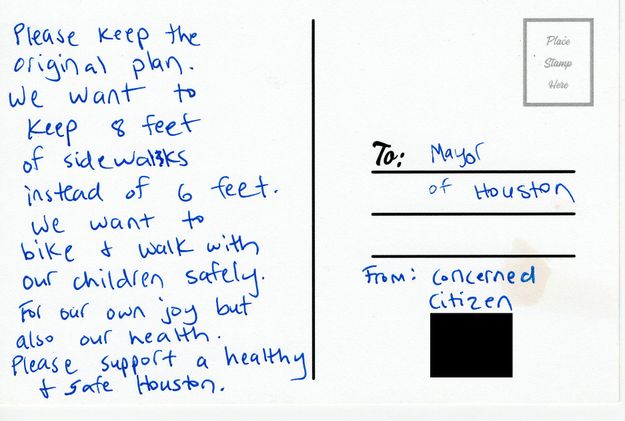 Please keep the
original plan.
We want to
keep 8 feet
of sidewalks
instead of 6 feet.
We want to
bike & walk with
our children safely.
For our own joy but
also our health.
Please support a healthy
& safe Houston.
Place
Stamp
Here
To: Mayor
of Houston
From: Concerned
Citizen